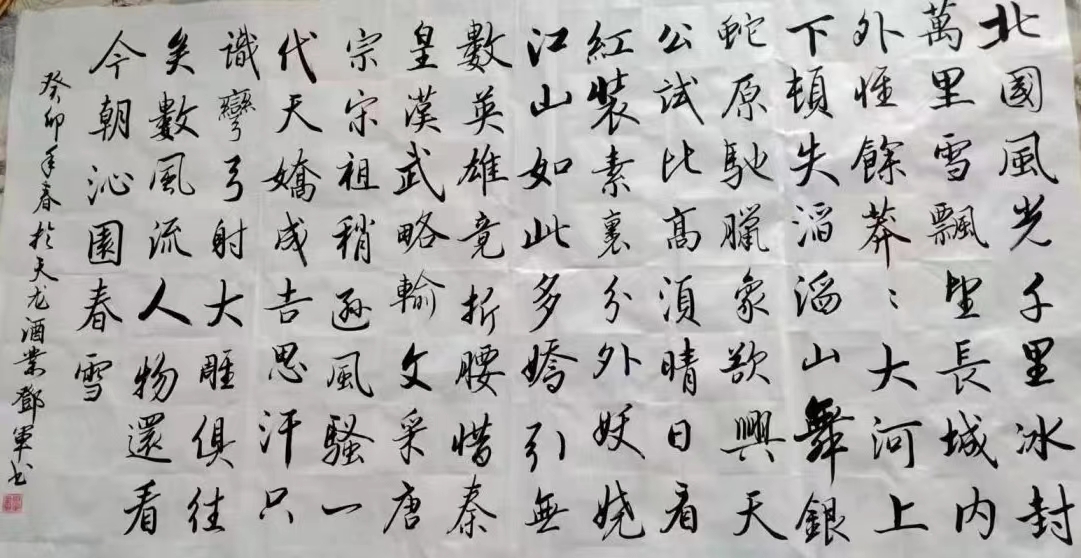 北國風光千里冰封
萬里雪飄望長城内
外惟餘莽〻大河上
下頓失滔滔山舞銀
蛇原馳臘象欲與天
公試比高須晴日看
紅裝素裹分外妖嬈
江山如此多嬌引無
數英雄竟折腰惜秦
皇漢武略輸文采唐
宗宋祖稍遜風騷一
代天嬌成吉思汗只
識彎弓射大雕俱往
矣數風流人物還看
今朝沁園春雪
癸卯年春於天龙酒業鄧軍书